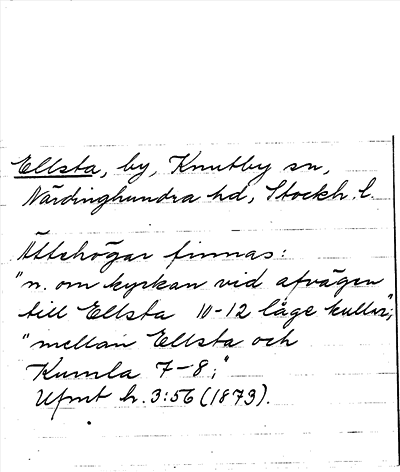 Ellsta, by, Knutby sn,
Närdinghundra hd, Stockh. l.
Ättehögar finnas:
"n. om kyrkan vid afvägen
till Ellsta 10-12 låge kullar";
"mellan Ellsta och
Kumla 7-8;"
Ufmt h. 3:56 (1873).